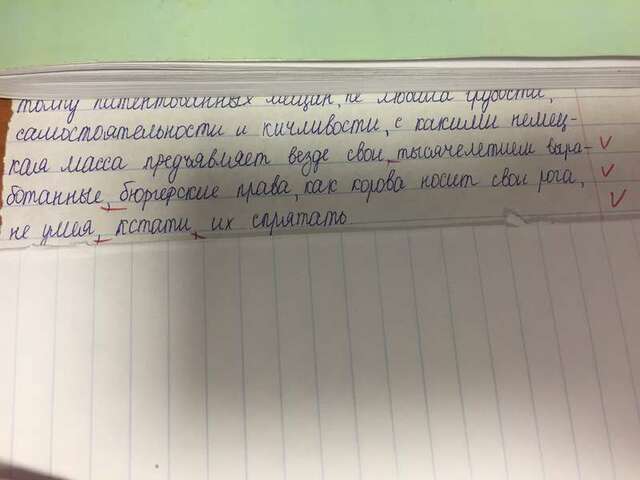 толпу патентованных мещан, не любила грубости,
самостоятельности и кичливости, с какими немец-
кая масса предъявляет везде свои, тысячелетием выра-
ботанные, бюргерские права, как корова носит свои рога,
не умея, кстати, их спрятать